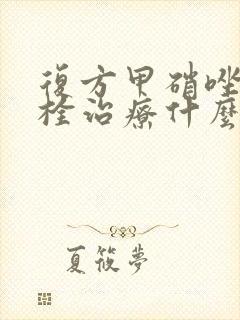 復方甲硝唑
栓治療什麼
夏筱夢